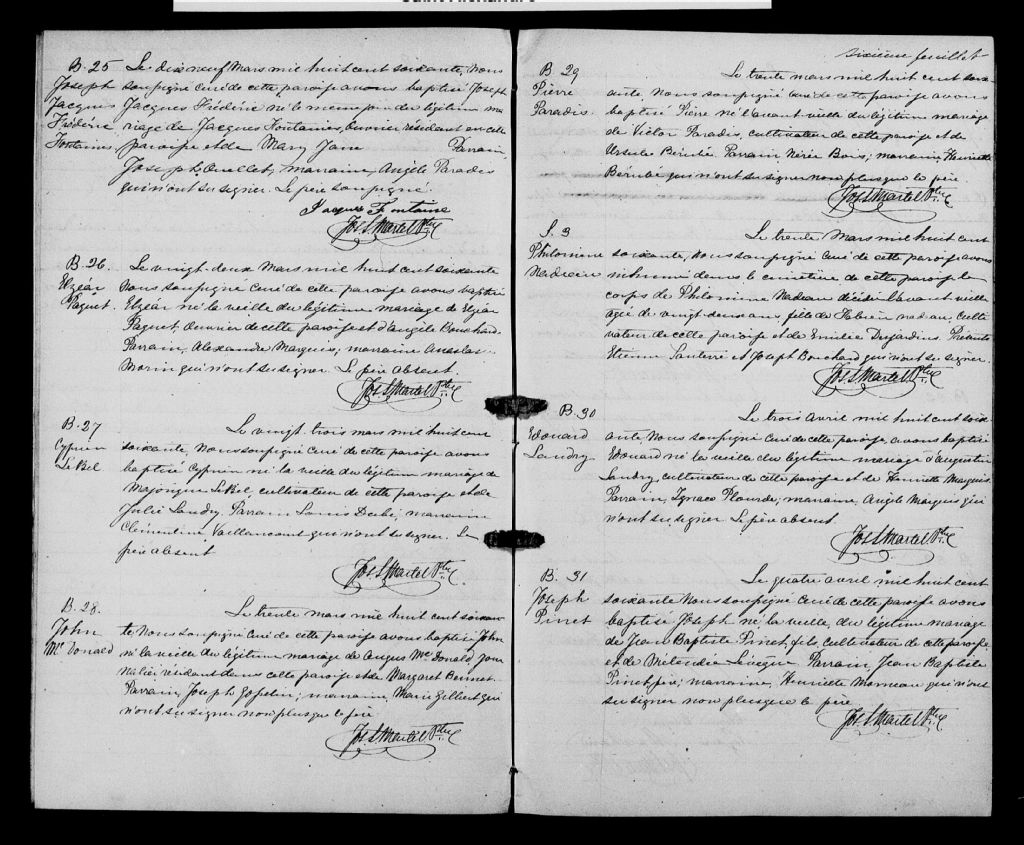 B. 25
Joseph
Jacques
Frédéric
Fontaines
Le dix neuf Mars mil huit cent soixante, nous
soussigné Curé de cette paroisse avons baptisé Joseph
Jacques Frédéric né le même jour du légitime ma
riage de Jacques Fontaines, ouvrier résidant en cette
paroisse et de Mary Jane Parrain,
Joseph Ouellet, marraine, Angèle Paradis
qui n'ont su signer. Le père soussigné.
Jacques Fontaine
Jos. S. Martel Ptre
B. 26.
Elzéar
Paquet
Le vingt-deux Mars mil huit cent soixante
nous soussigné Curé de cette paroisse avons baptisé
Elzéar né la veille du légitime mariage de Elzéar
Paquet, ouvrier de cette paroisse et d'Angèle Bouchard
Parrain, Alexandre Marquis, marraine Anastas..
Morin qui n'ont su signer. Le père absent.
Jos. S. Martel Ptre
B. 27
Cyprien
LeBel
Le vingt-trois mars mil huit cent
soixante, Nous soussigné Curé de cette paroisse avons
baptisé Cyprien né la veille du légitime mariage de
Majorique LeBel, cultivateur de cette paroisse et de
Julie Landry. Parrain Louis Dubé, marraine
Clémentine Vaillancourt qui n'ont su signer. Le
père absent
Jos. S. Martel Ptre
B. 28.
John
Mc Donald
Le trente mars mil huit cent soixan
te Nous soussigné Curé de cette paroisse avons baptisé John
né la veille du légitime mariage de Angus Mc Donald, Jour
nalier résidant dans cette paroisse et de Margaret Bennet.
Parrain, Joseph Gosselin; marraine, Marie Gilbert qui
n'ont su signer non plus que le père
Jos. S. Martel Ptre
sixième feuillet
B. 29
Pierre
Paradis.
Le trente mars mil huit cent soix
ante. Nous soussigné Curé de cette paroisse avons
baptisé Pierre né l'avant veille du légitime mariage
de Victor Paradis, cultivateur de cette paroisse et de
Ursule Bérubé, Parrain, Nérée Bois; marraine Henriette
Bérubé qui n'ont su signer non plus que le père.
Jos. S. Martel Ptre
S. 3
Philomène
Nadeau
Le trente Mars mil huit cent
soixante, Nous soussigné Curé de cette paroisse avons
inhumé dans le cimetière de cette paroisse le
corps de Philomène Nadeau décédée l'avant veille
agée de vingt deux ans fille de Fabien Nadeau, Culti
vateur de cette paroisse et de Emilie Desjardins. Présents
Etienne Santerre et Joseph Bouchard qui n'ont su signer.
Jos. S. Martel Ptre
B. 30
Edouard
Landry
Le trois avril mil huit cent soix
ante Nous soussigné Curé de cette paroisse, avons baptisé
Edouard né la veille du légitime mariage d'Augustin
Landry, cultivateur de cette paroisse et de Henriette Marquis.
Parrain, Ignace Plourde; marraine, Angèle Marquis qui
n'ont su signer Le père absent.
Jos. S. Martel Ptre
B. 31
Joseph
Pinet
Le quatre avril mil huit cent
soixante Nous soussigné Curé de cette paroisse avons
baptisé Joseph né la veille, du légitime mariage
de Jean Baptiste Pinet, fils, Cultivateur de cette paroisse
et de Lévesque Parrain, Jean Baptiste
Pinet père; marraine, Henriette Morneau qui n'ont
su signer non plus que le père
Jos. S. Martel Ptre